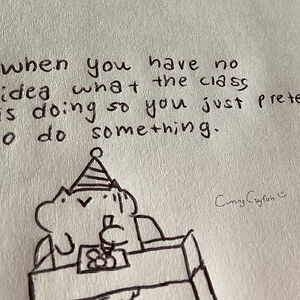 when you have no
idea what the class
is doing so you just prete
o do something.